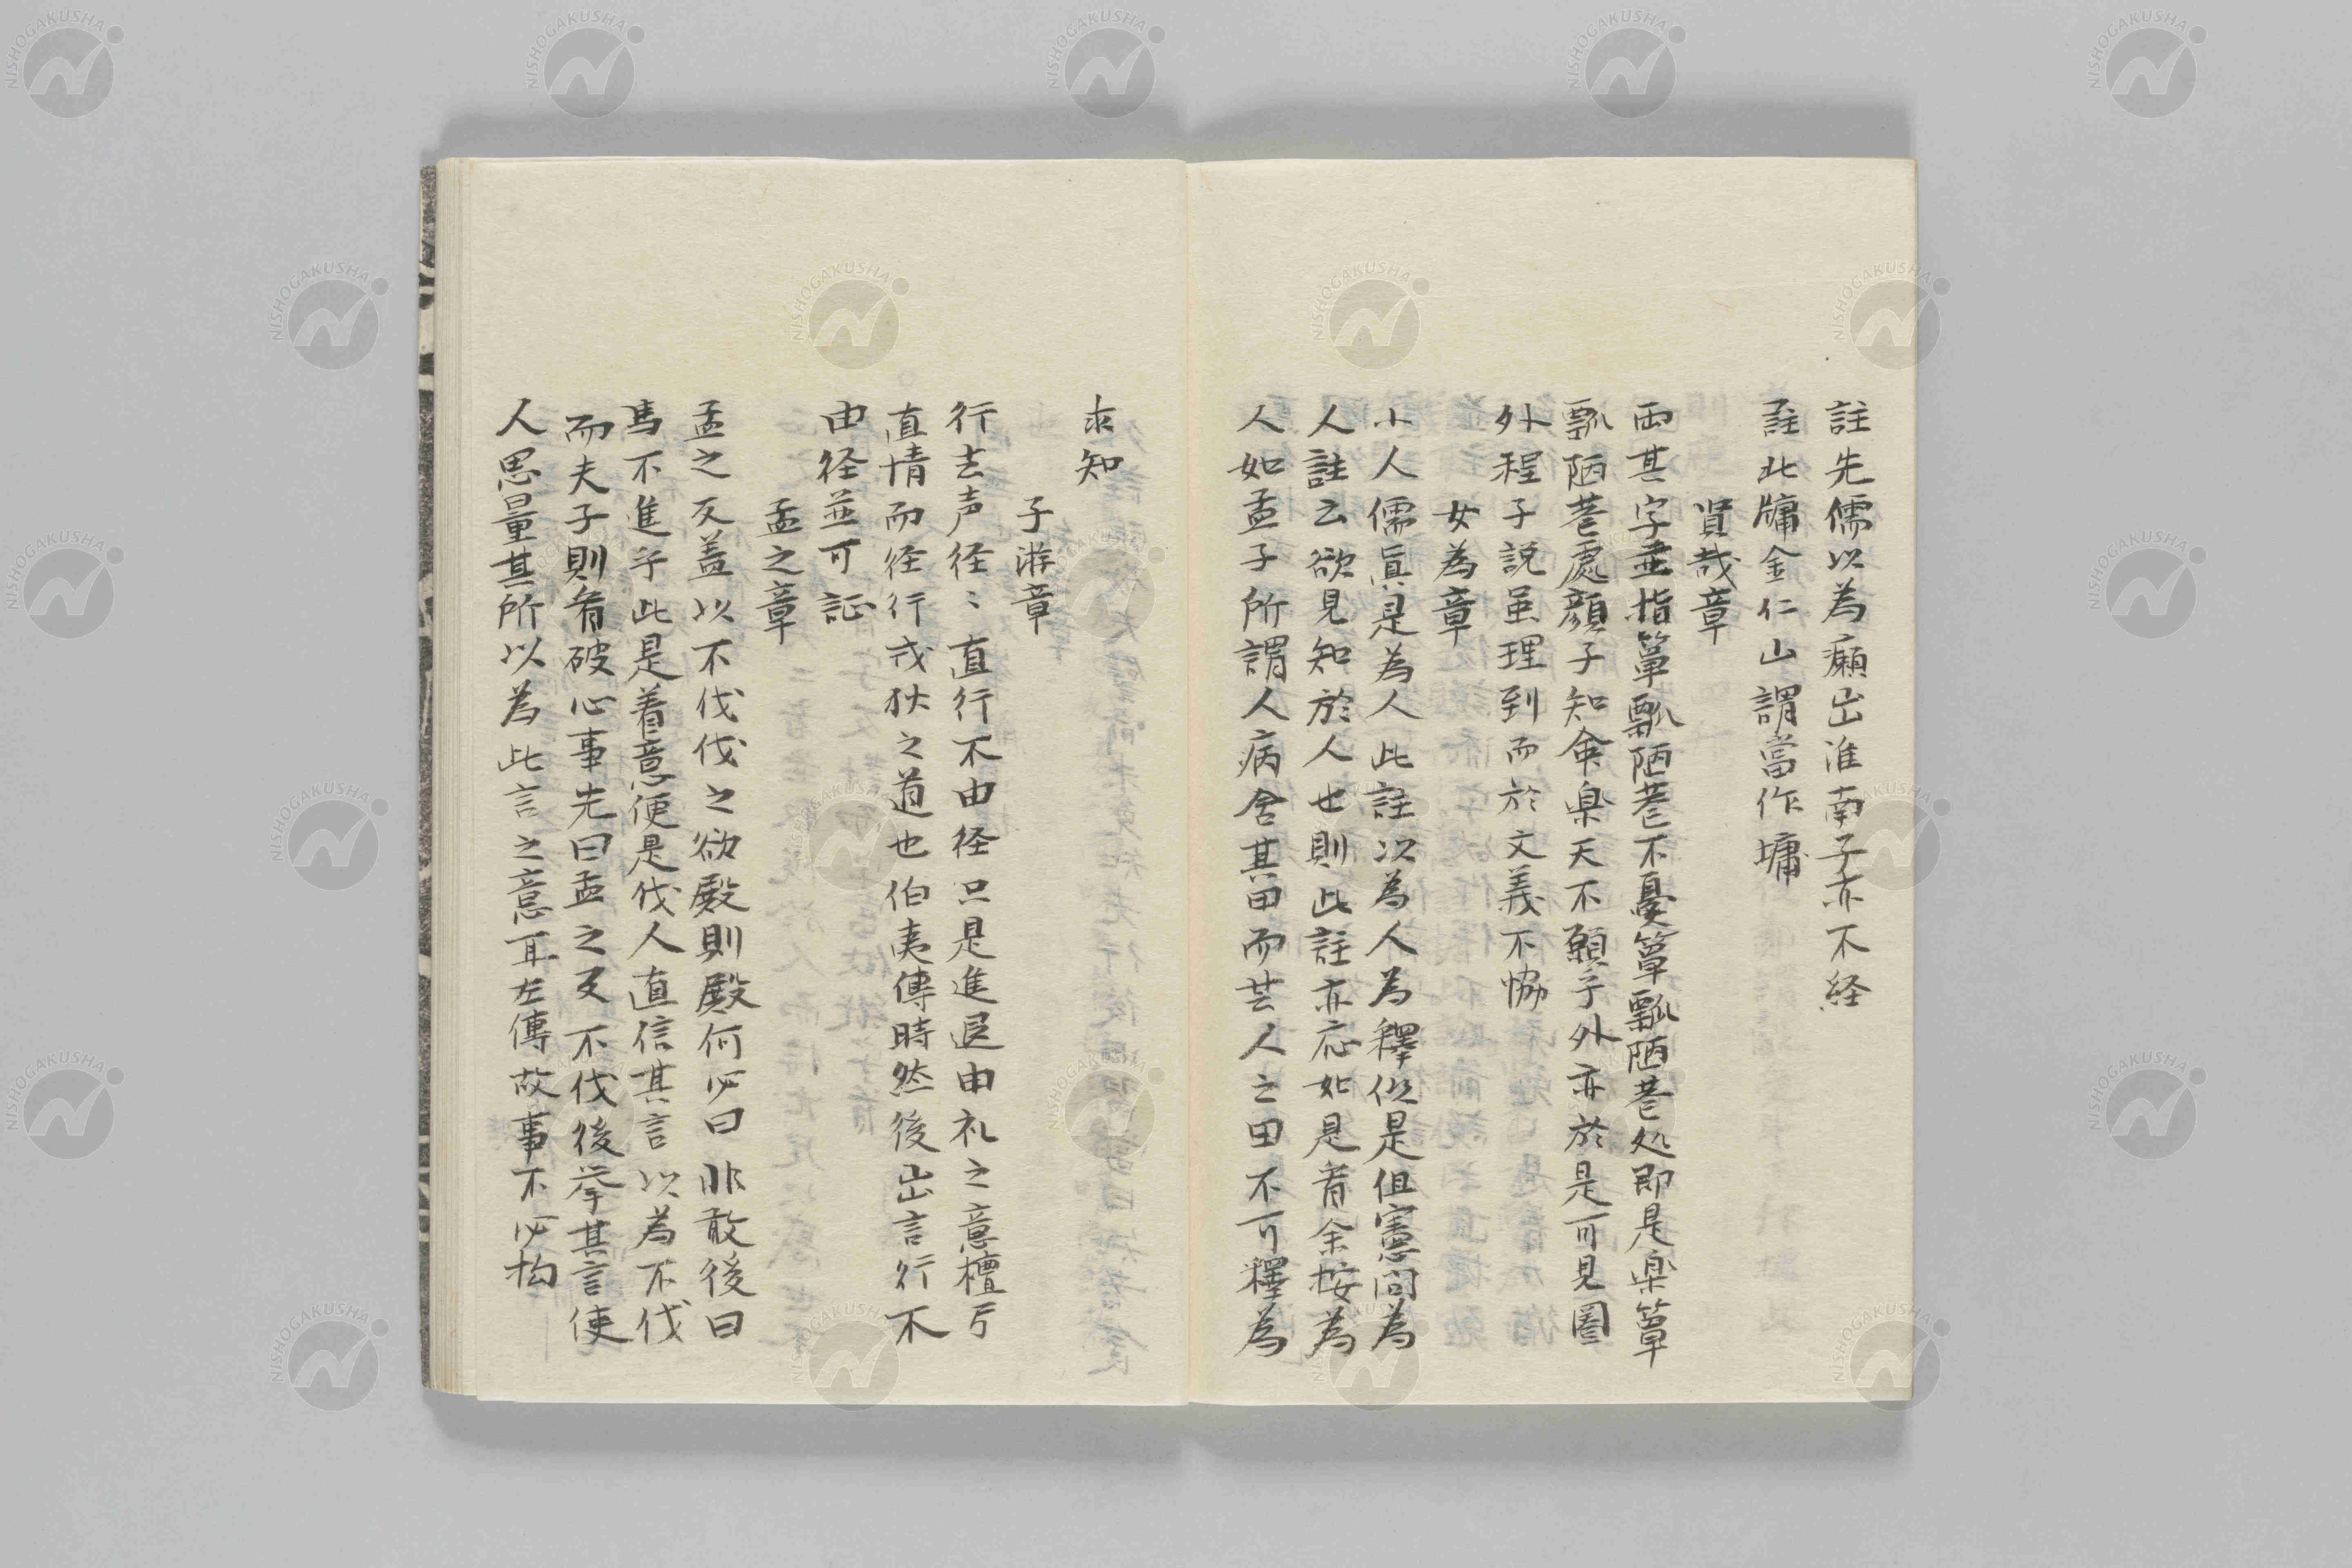 註先儒以為癩出淮南子亦不経
註北牗金仁山謂當作墉
賢哉章
両其字並指簞瓢陋巷不憂簞瓢陋巷処即是楽簞
瓢陋巷處顔子知命楽天不願乎外亦於是可見圏
外程子説虽理到而於文義不恊
女為章
小人儒眞是為人此註以為人為釋似是但憲問為
人註云欲見知於人也則此註亦応如是看余按為
人如孟子所謂人病舍其田而芸人之田不可釋為
求知
子游章
行去声径〻直行不由径只是進退由礼之意檀弓
直情而径行戎狄之道也伯夷傳時然後出言行不
由径並可証
孟之章
孟之反盖以不伐伐之欲殿則殿何必曰非敢後曰
馬不進乎此是着意便是伐人直信其言以為不伐
而夫子則看破心事先曰孟之反不伐後挙其言使
人思量其所以為此言之意耳左傳故事不必拘
NISHOGAKUSHA